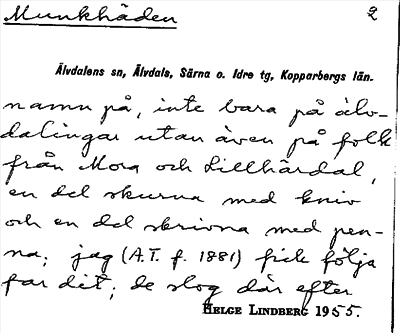 Munkhäden 2
Älvdalens sn, Älvdals, Särna o. Idre tg, Kopparbergs län.
namn på, inte bara på älv-
dalingar utan även på folk
från Mora och Lillhärdal,
en del skurna med kniv
och en del skrivna med pen-
na; jag (A.T. f. 1881) fick följa
far dit; de slog där efter
HELGE LINDBERG 1955.